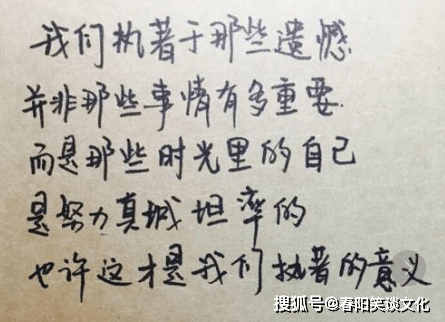 我们执著于那些遗憾
并非那些事情有多重要.
而是那些时光里的自己
是努力真城坦率的
也许这才是我们执著的意义
搜狐号@春阳笑谈文化